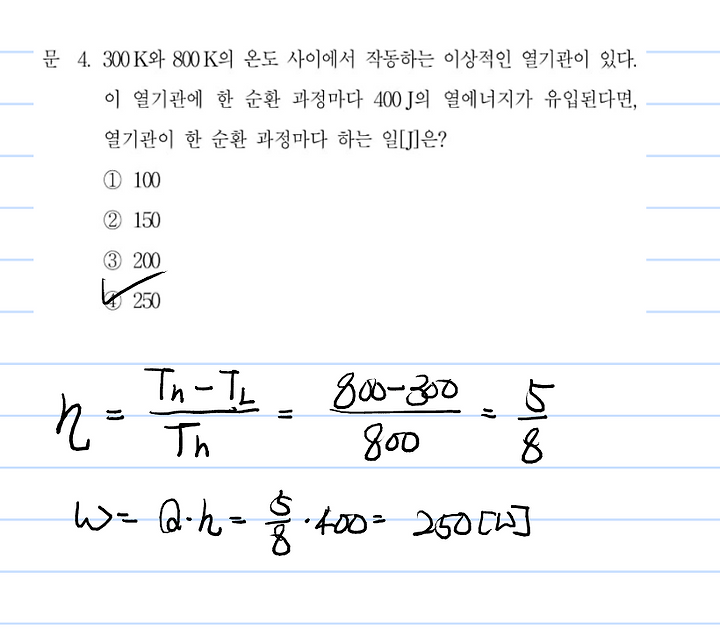 문 4. 300 K와 800 K의 온도 사이에서 작동하는 이상적인 열기관이 있다.
이 열기관에 한 순환 과정마다 400 J의 열에너지가 유입된다면,
열기관이 한 순환 과정마다 하는 일[J]은?
① 100
② 150
③ 200
④ 250
η = (Th - TL)/Th = (800-300)/800 = 5/8
W = Q·η = 5/8 · 400 = 250 [W]